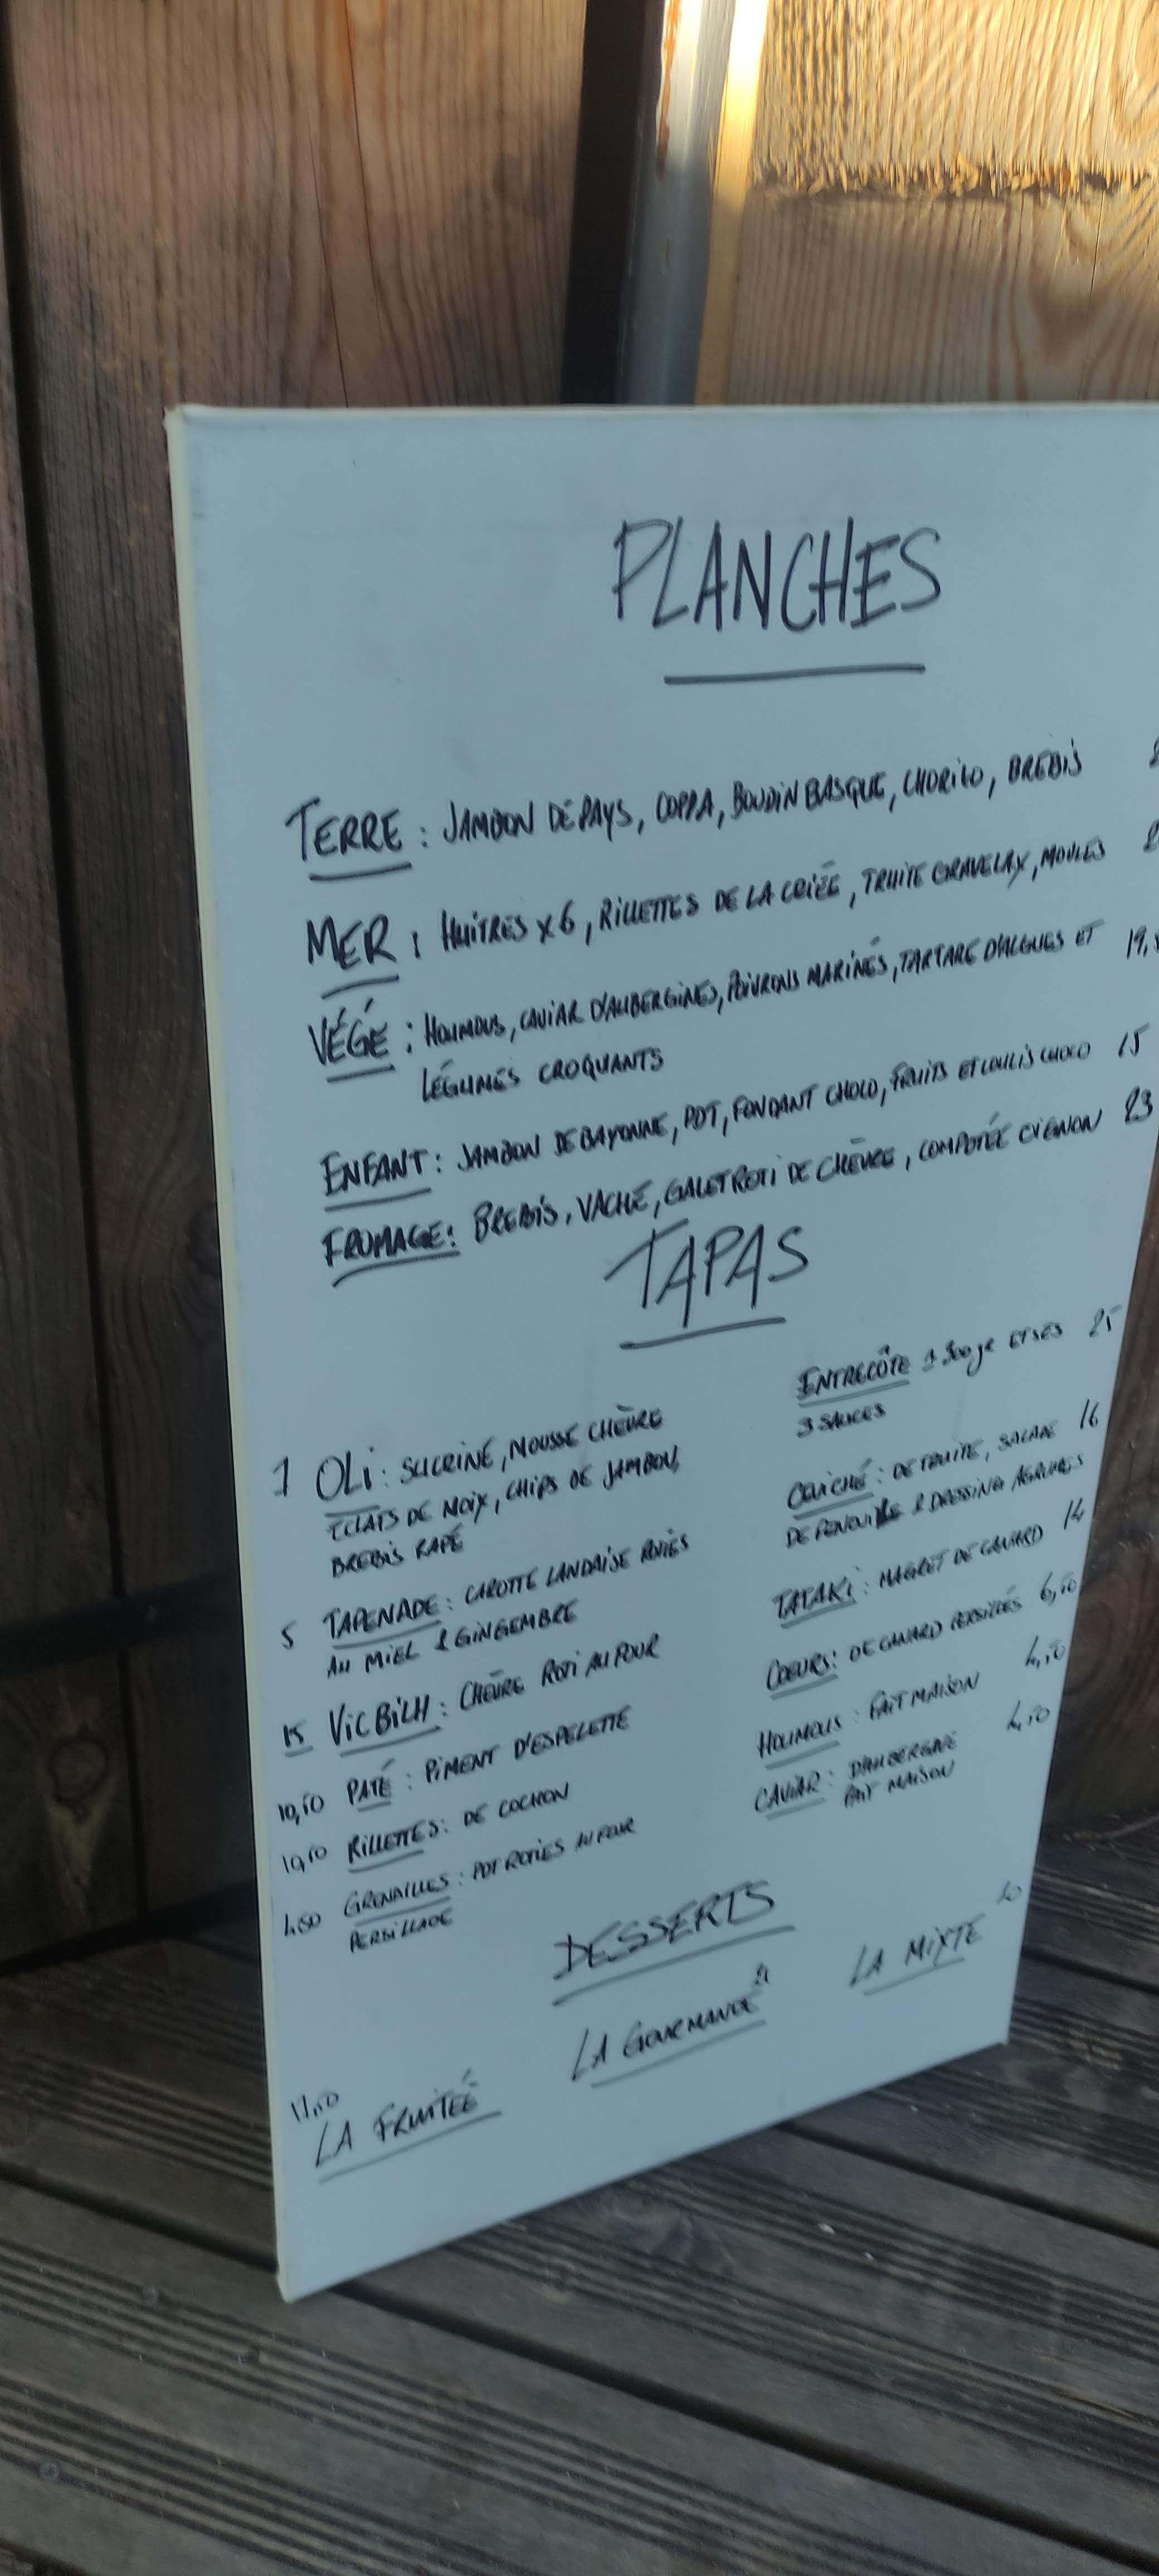 PLANCHES
TERRE : JAMBON DE PAYS, COPPA, BOUDIN BASQUE, CHORIZO, BREBIS
MER : HUITRES x6, RILLETTES DE LA CRIÉE, TRUITE GRAVELAX, MOULES
VÉGÉ : HOUMOUS, CAVIAR D'AUBERGINES, POIVRONS MARINÉS, TARTARE D'ALGUES ET 19,
LÉGUMES CROQUANTS
ENFANT : JAMBON DE BAYONNE, PDT, FONDANT CHOCO, FRUITS ET COULIS CHOCO 15
FROMAGE : BREBIS, VACHE, GALET ROTI DE CHÈVRE, COMPOTÉE OIGNON 23
TAPAS
7 OLI : SUCRINE, MOUSSE CHÈVRE
ÉCLATS DE NOIX, CHIPS DE JAMBON,
BREBIS RAPÉ
5 TAPENADE : CAROTTE LANDAISE ROTIES
AU MIEL & GINGEMBRE
15 VICBILH : CHÈVRE ROTI AU FOUR
10,50 PATÉ : PIMENT D'ESPELETTE
10,50 RILLETTES : DE COCHON
4,50 GRENAILLES : PDT ROTIES AU FOUR
PERSILLADE
ENTRECÔTE ± 300gr ET SES 25
3 SAUCES
CEVICHÉ : DE TRUITE, SALADE 16
DE FENOUIL & DRESSING AGRUMES
TATAKI : MAGRET DE CANARD 14
COEURS : DE CANARD PERSILLÉS 6,50
HOUMOUS : FAIT MAISON 4,50
CAVIAR : D'AUBERGINE 4,50
FAIT MAISON
DESSERTS
11,50
LA FRUITÉE
LA GOURMANDE
LA MIXTE